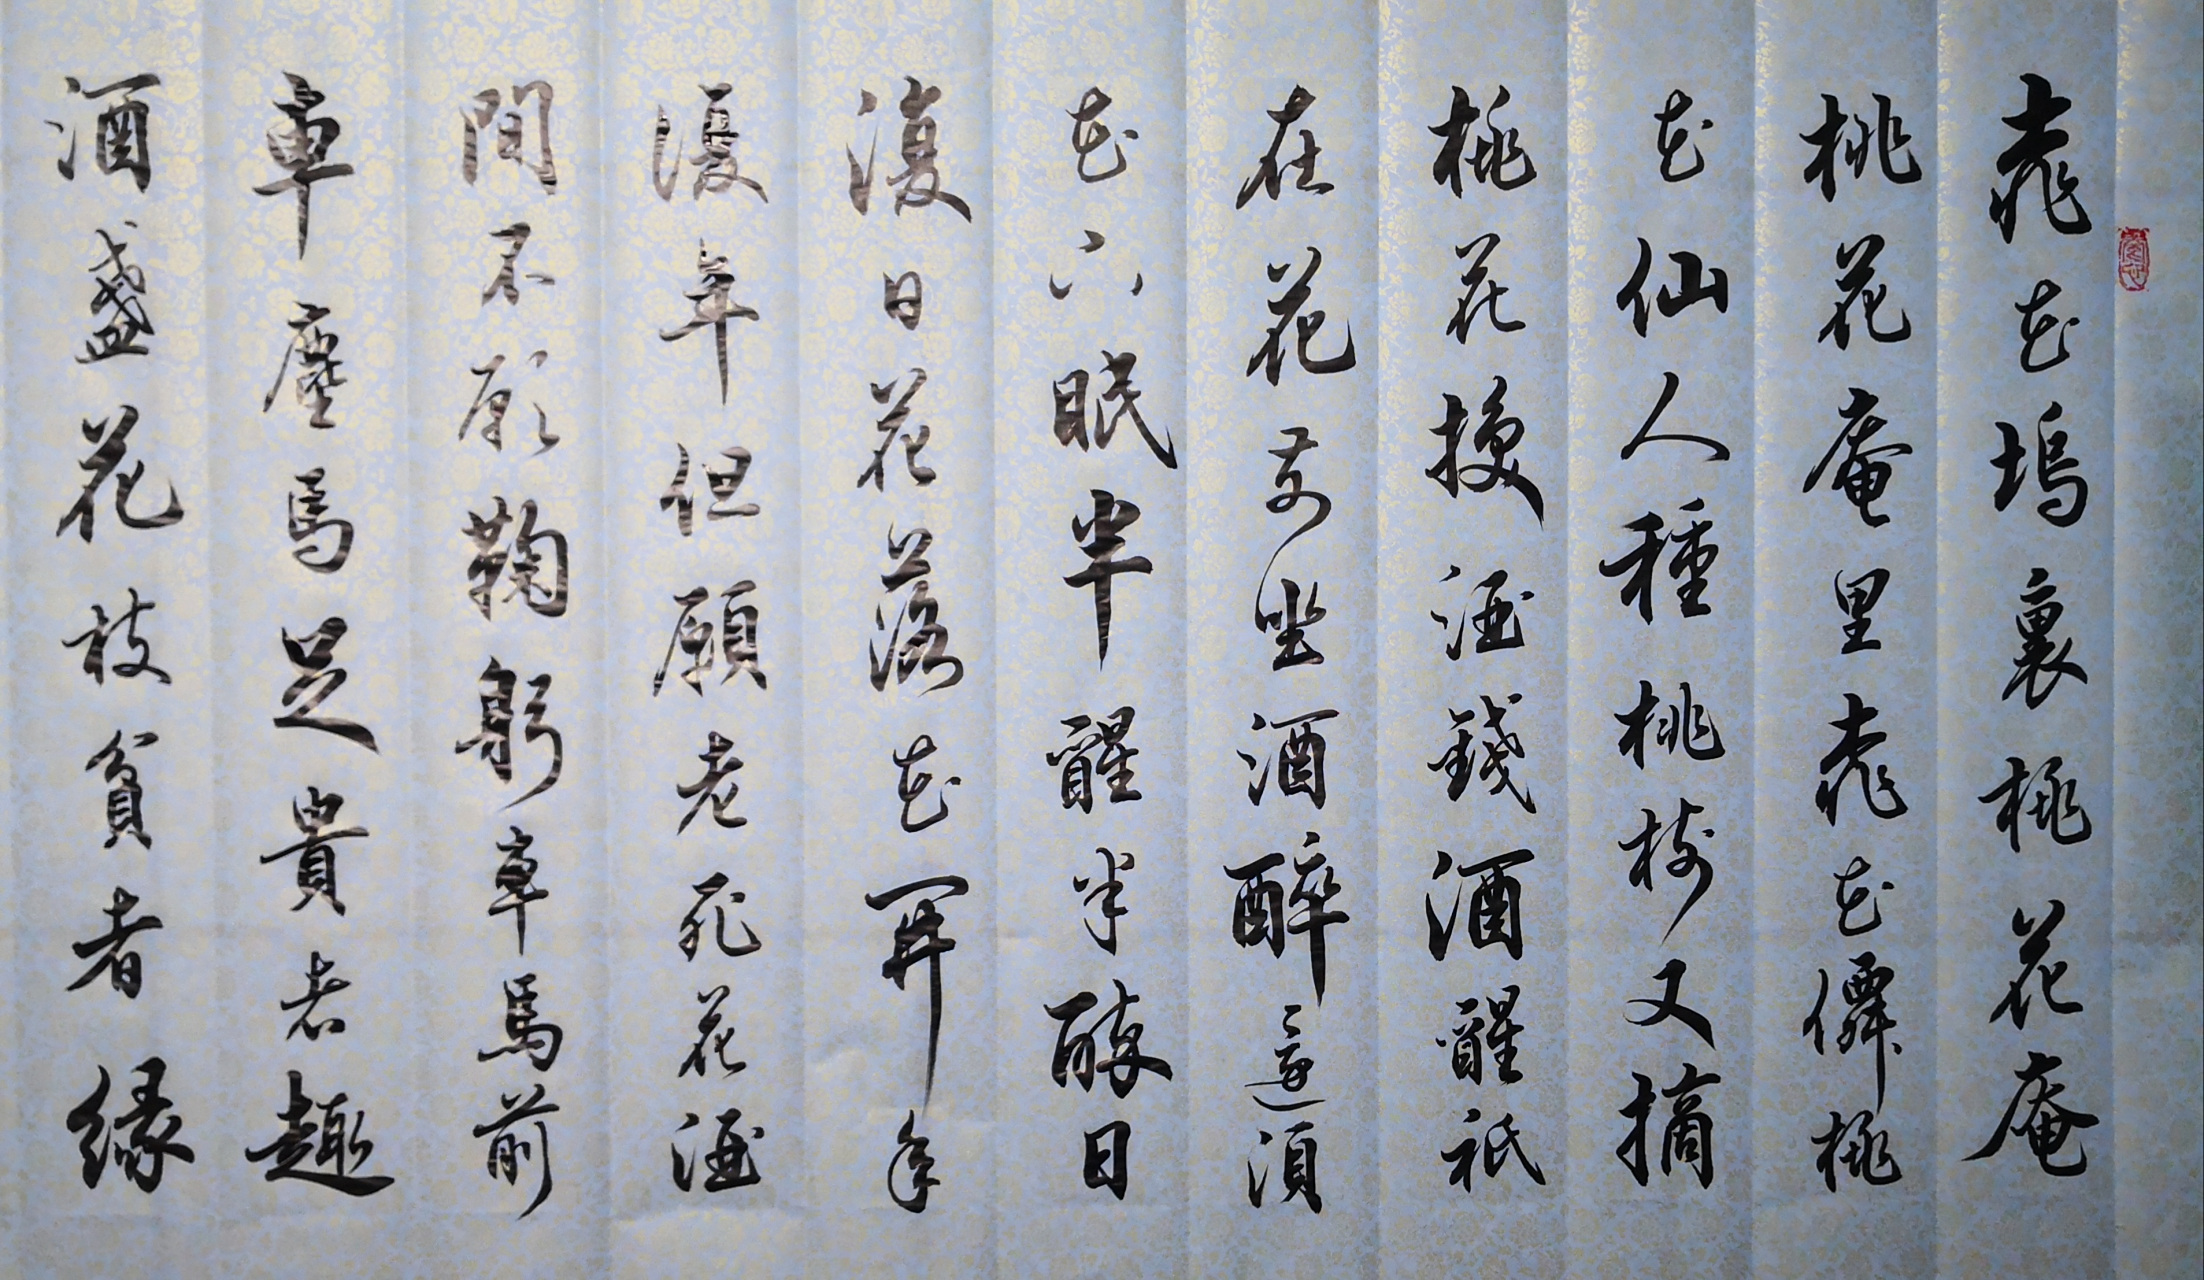 桃花塢裏桃花庵
桃花庵里桃花僊桃
花仙人種桃樹又摘
桃花換酒錢酒醒祇
在花前坐酒醉還須
花下眠半醒半醉日
復日花落花開年
復年但願老死花酒
間不願鞠躬車馬前
車塵馬足貴者趣
酒盞花枝貧者緣